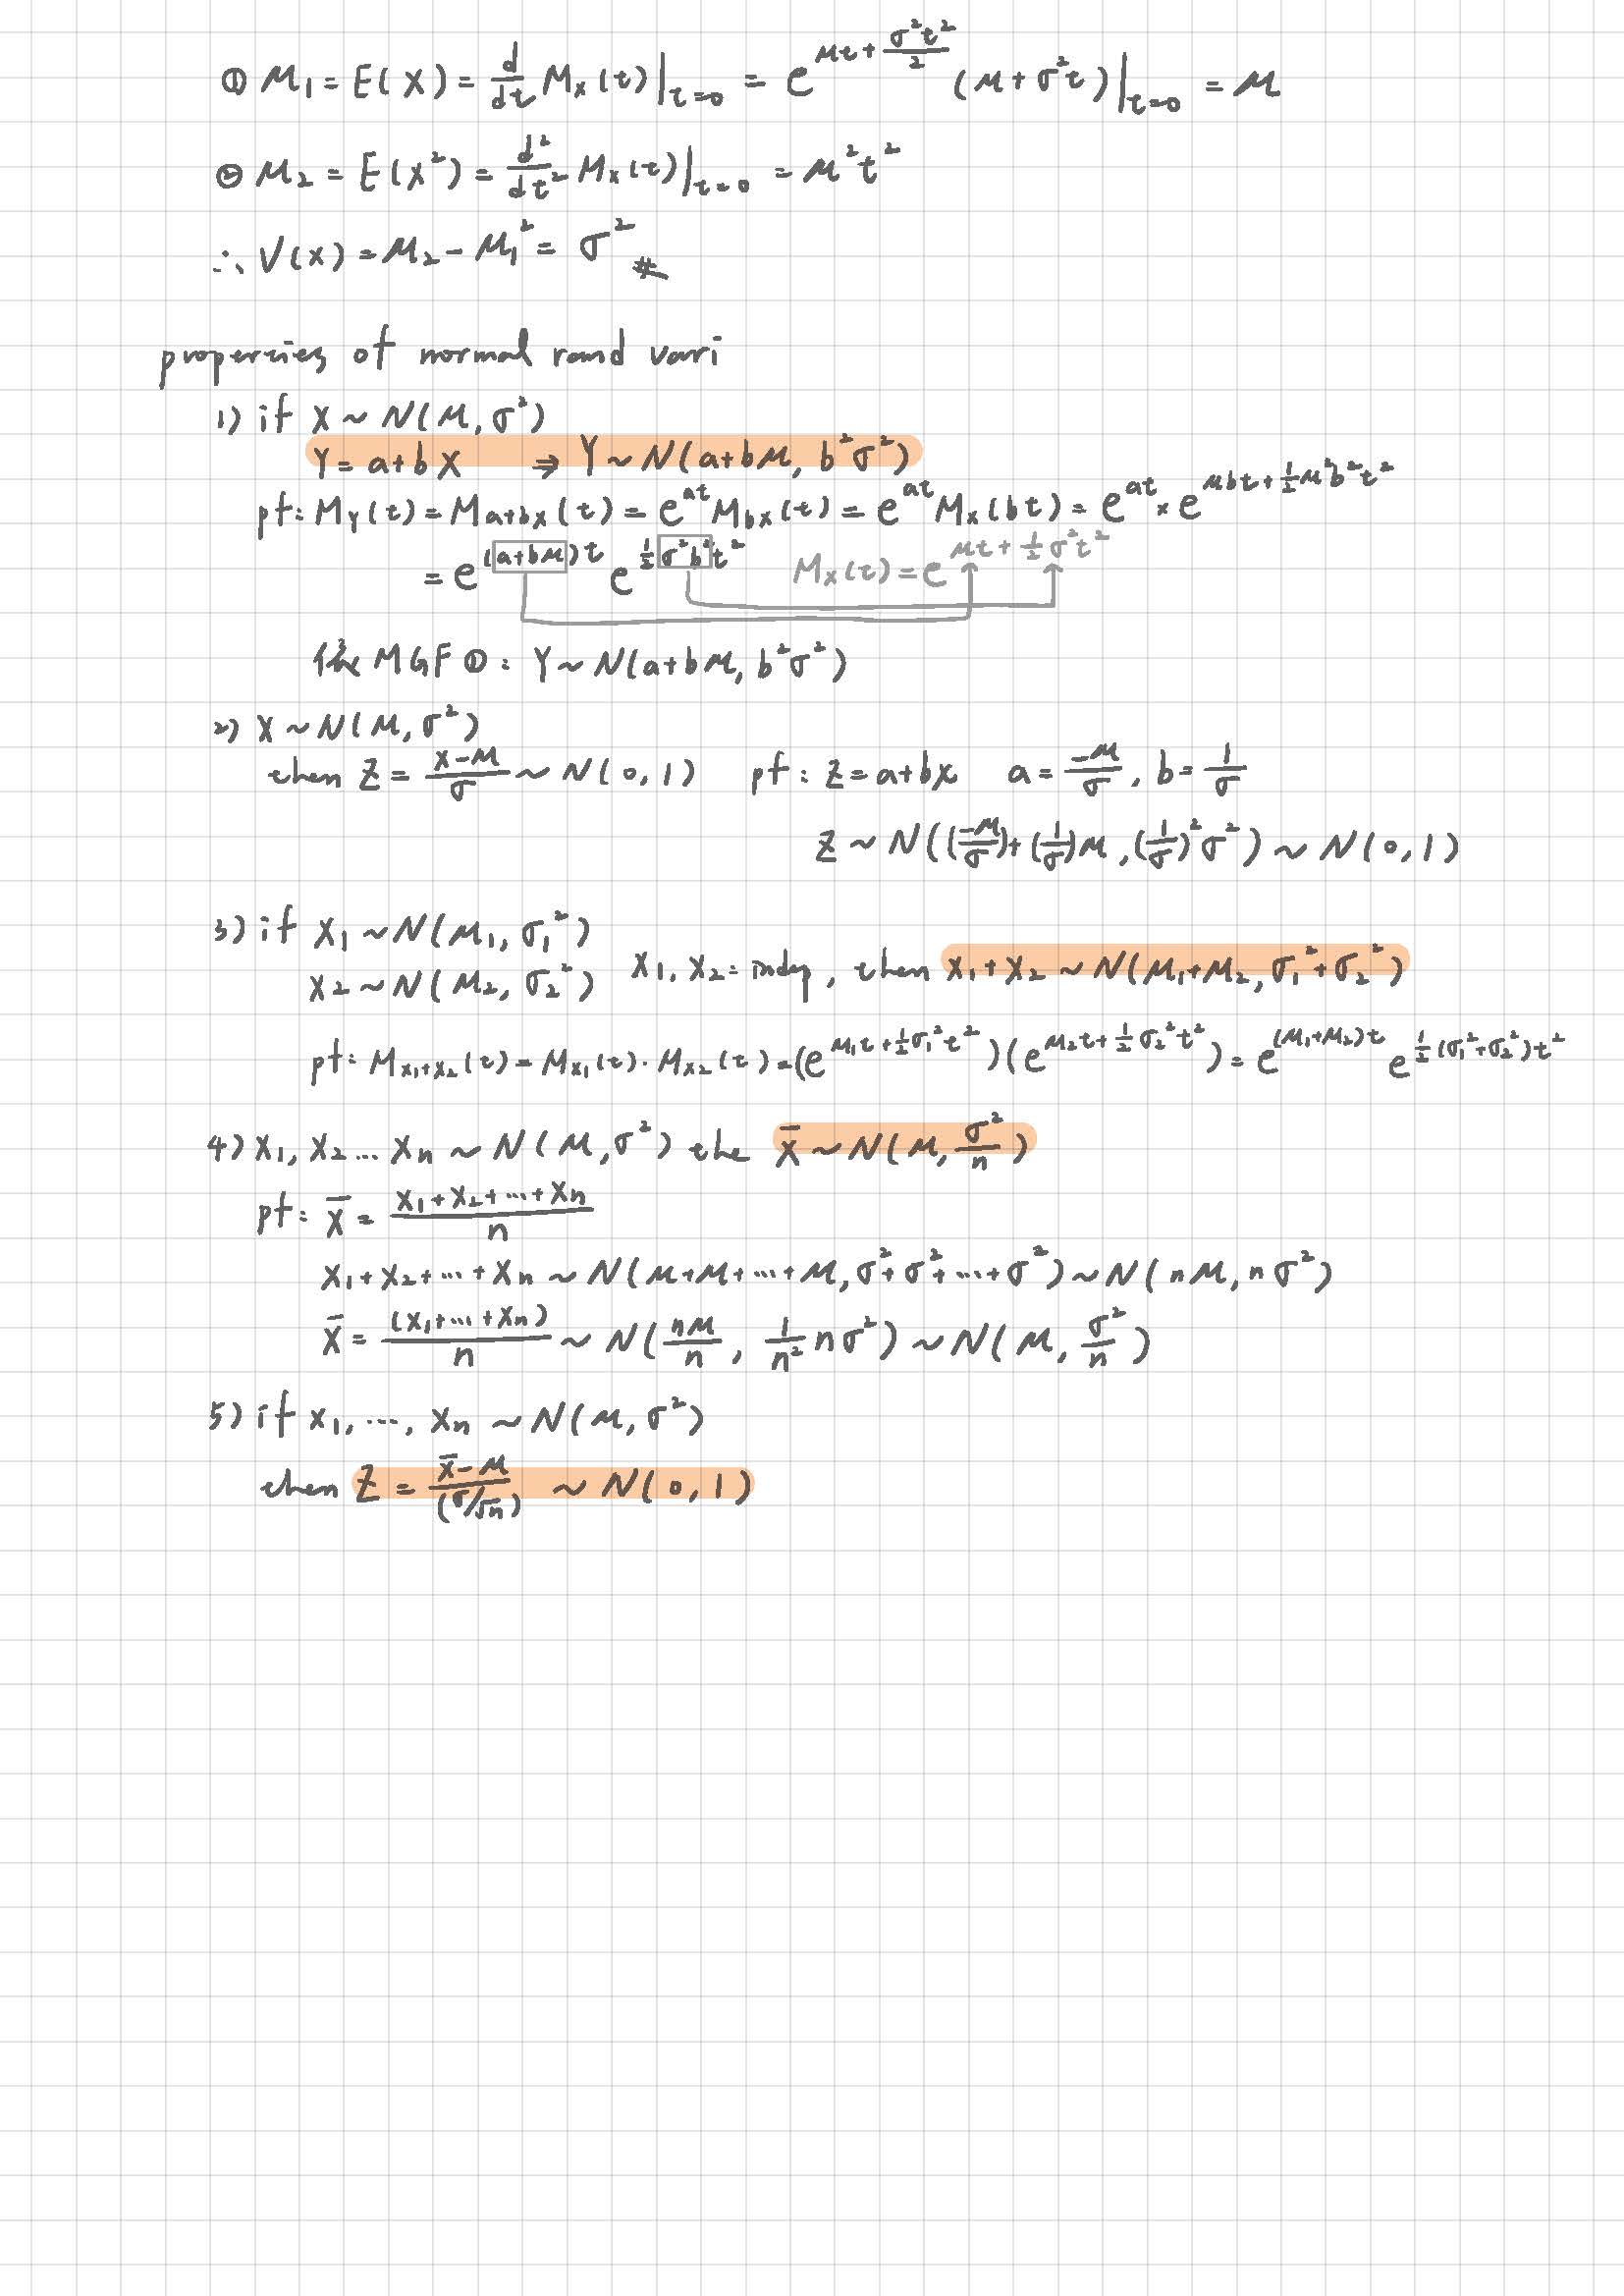 ① M₁ = E(X) = d/dt Mₓ(t)|ₜ₌₀ = e^(μt + σ²t²/2) (μ + σ²t)|ₜ₌₀ = μ
② M₂ = E(X²) = d²/dt² Mₓ(t)|ₜ₌₀ = μ²t²
∴ V(x) = M₂ - M₁² = σ² #
properties of normal rand vari
1) if X ~ N(μ, σ²)
Y = a+bX ⇒ Y ~ N(a+bμ, b²σ²)
pf: M_Y(t) = M_{a+bX}(t) = e^{at} M_{bX}(t) = e^{at} M_X(bt) = e^{at} × e^{μbt + ½μ²b²t²}
= e^{(a+bμ)t} e^{½σ²b²t²} M_X(t) = e^{μt + ½σ²t²}
MGF ①: Y ~ N(a+bμ, b²σ²)
2) X ~ N(μ, σ²)
then Z = (X-μ)/σ ~ N(0, 1) pf: Z = a+bx a = -μ/σ, b = 1/σ
Z ~ N((-μ/σ)+(1/σ)μ, (1/σ)²σ²) ~ N(0, 1)
3) if X₁ ~ N(μ₁, σ₁²)
X₂ ~ N(μ₂, σ₂²) X₁, X₂ = indep, then X₁+X₂ ~ N(μ₁+μ₂, σ₁²+σ₂²)
pf: M_{X₁+X₂}(t) = M_{X₁}(t)·M_{X₂}(t) = (e^{μ₁t+½σ₁²t²})(e^{μ₂t+½σ₂²t²}) = e^{(μ₁+μ₂)t} e^{½(σ₁²+σ₂²)t²}
4) X₁, X₂... Xn ~ N(μ, σ²) the X̄ ~ N(μ, σ²/n)
pf: X̄ = (X₁+X₂+...+Xn)/n
X₁+X₂+...+Xn ~ N(μ+μ+...+μ, σ²+σ²+...+σ²) ~ N(nμ, nσ²)
X̄ = (X₁+...+Xn)/n ~ N(nμ/n, 1/n² nσ²) ~ N(μ, σ²/n)
5) if X₁, ..., Xn ~ N(μ, σ²)
then Z = (X̄-μ)/(σ/√n) ~ N(0, 1)